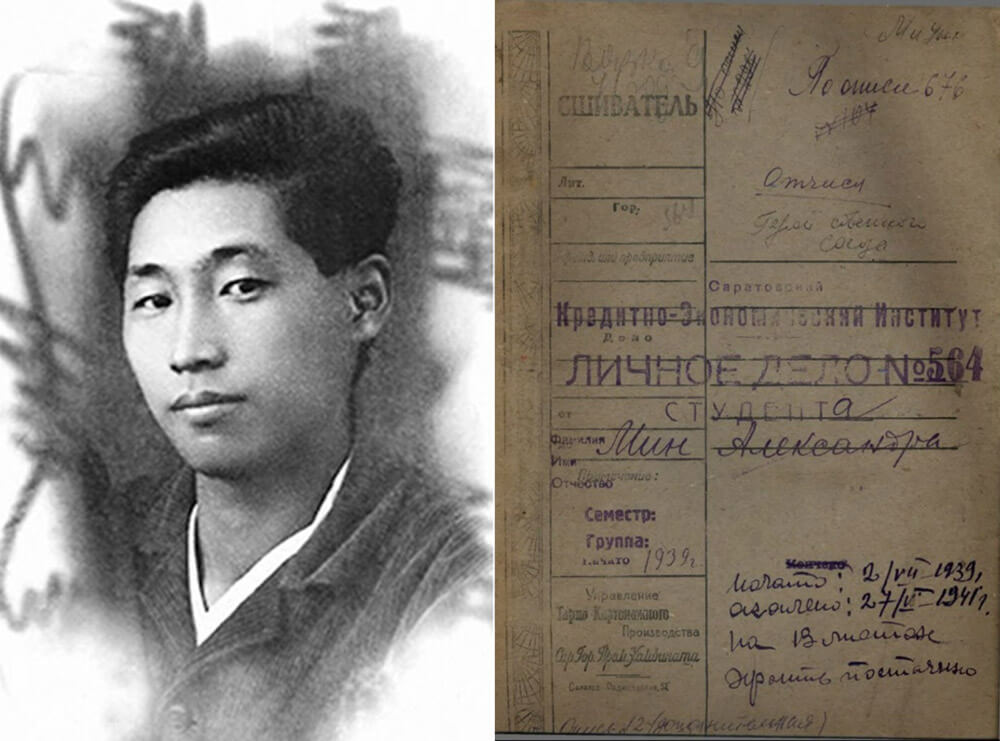 СШИВАТЕЛЬ
По описи 676
№ 107
Лит.
Отчисл
Гор.
564
Герой советского
союза
Саратовский
Кредитно-Экономический Институт
Дело
ЛИЧНОЕ ДЕЛО №564
от
СТУДЕНТа
Фамилия Мин Александра
Имя
Отчество
Примечание:
Семестр:
Группа:
Начато 1939г.
Кончено
начато: 2/VII-1939г.
окончено: 27/VI-1941г.
на 13 листах
хранить постоянно
Управление
Тарно Картонажного
Производства
Сар. Гор. Пром.Комбината
Опись №2 (дополнительная)